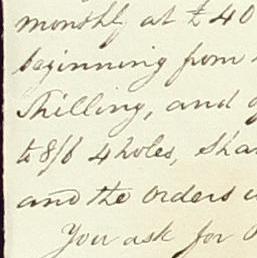 monthly at £40
beginning from
Shilling, and
to 8/6 4 holes, Sha
and the orders
You ask for